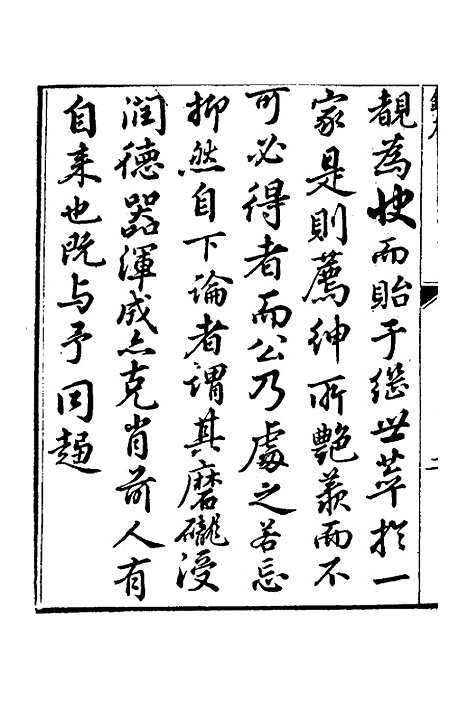 覩為快而貽于继世萃於一
家是則薦紳所艷羡而不
可必得者而公乃處之若忘
抑然自下論者謂其磨礲浸
润德器渾成亦克肖前人有
自来也既与予同趋